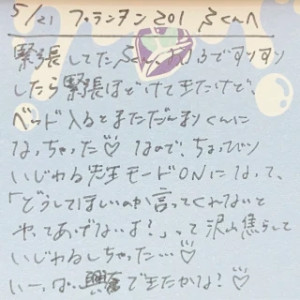 5/21 フランタン201 Sくんへ
緊張してたSくん、おふろでヌリヌリ
したら緊張ほどけてきたけど、
ベッド入るとまただんまりくんに
なっちゃった♡ なので、ちょっぴり
いじわる先生モードONになって、
「どうしてほしいのか言ってくれないと
やってあげないよ?」って沢山焦らして
いじわるしちゃった…♡
いーっぱい興奮できたかな?♡